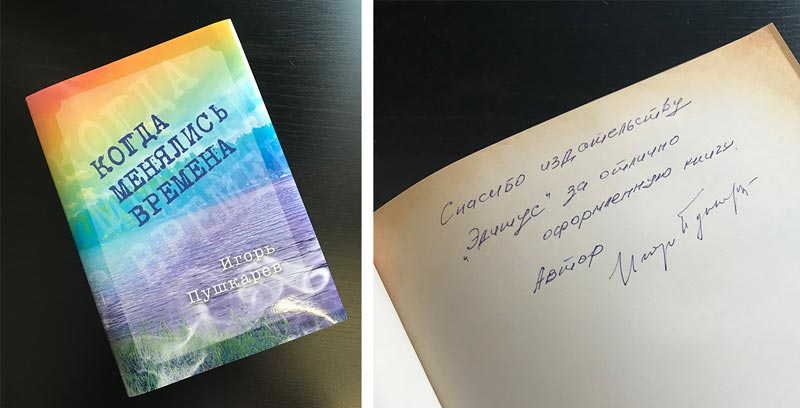 КОГДА
МЕНЯЛИСЬ
ВРЕМЕНА
Игорь
Пушкарев
Спасибо издательству
"Эдитус" за отлично
оформленную книгу.
Автор